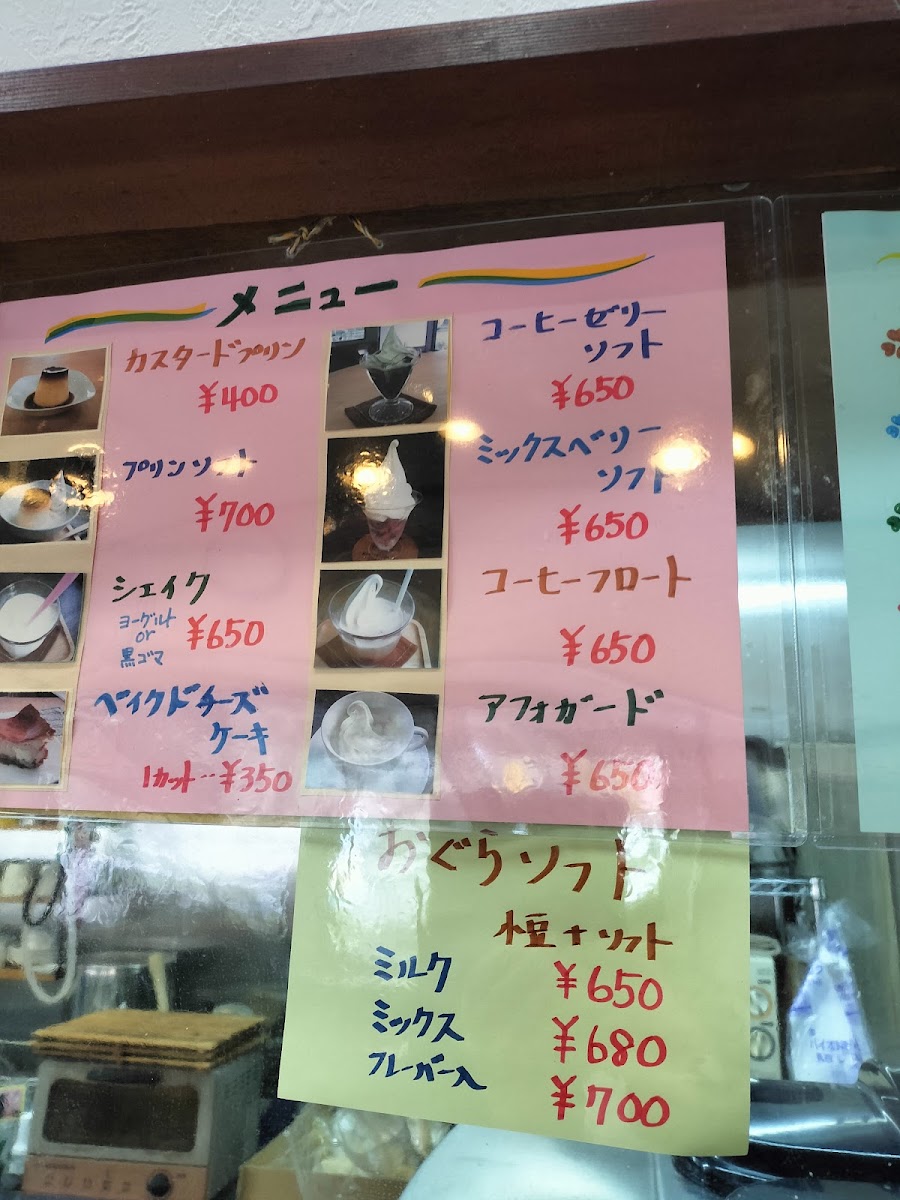 メニュー
カスタードプリン
¥400
プリンソフト
¥700
シェイク
ヨーグルト
or
黒ゴマ
¥650
ベイクドチーズ
ケーキ
1カット…¥350
コーヒーゼリー
ソフト
¥650
ミックスベリー
ソフト
¥650
コーヒーフロート
¥650
アフォガード
¥650
おぐらソフト
小豆+ソフト
ミルク ¥650
ミックス ¥680
フレーバー入 ¥700